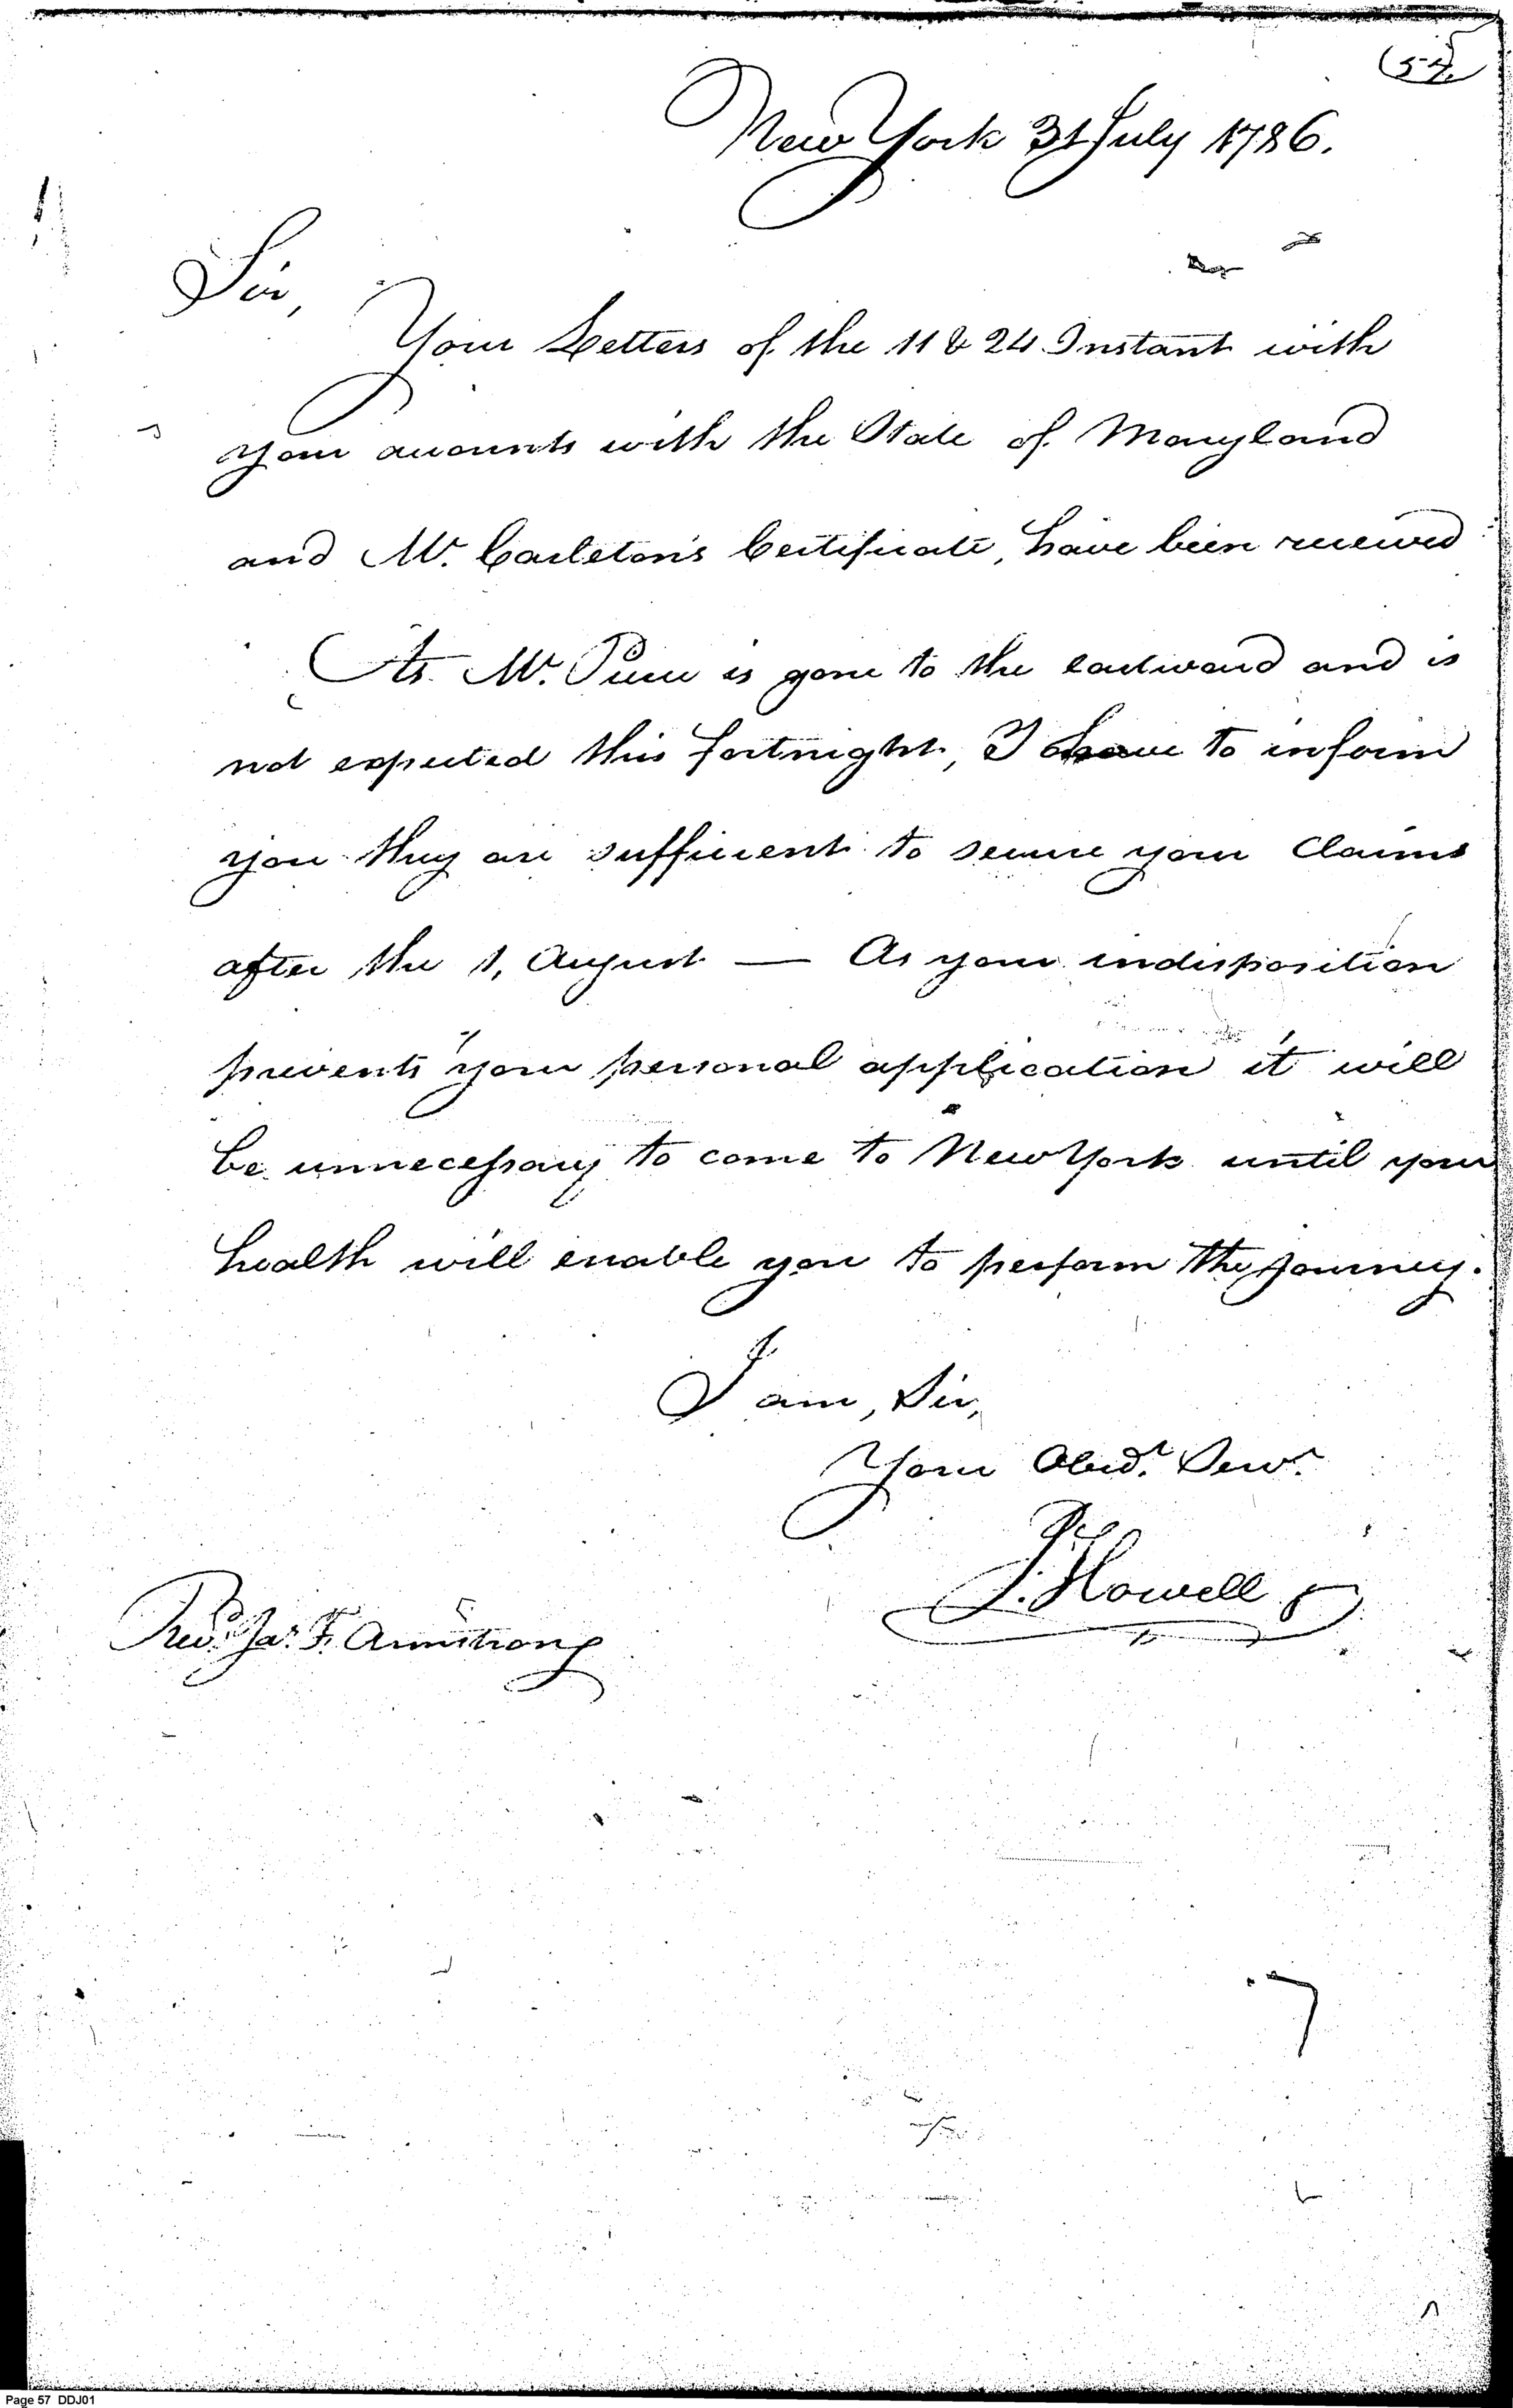 (57)
New York 31 July 1786.
Sir,
Your Letters of the 11 & 24 Instant with
your accounts with the State of Maryland
and Mr. Carleton's Certificate, have been received
As Mr. Pierce is gone to the eastward and is
not expected this fortnight, I have to inform
you they are sufficient to secure your Claims
after the 1, August — As your indisposition
prevents your personal application it will
be unnecessary to come to New York until your
health will enable you to perform the journey.
I am, Sir,
Your Obedt. Servt.
J. Howell
Revd. Jas. F. Armstrong
Page 57 DDJ01